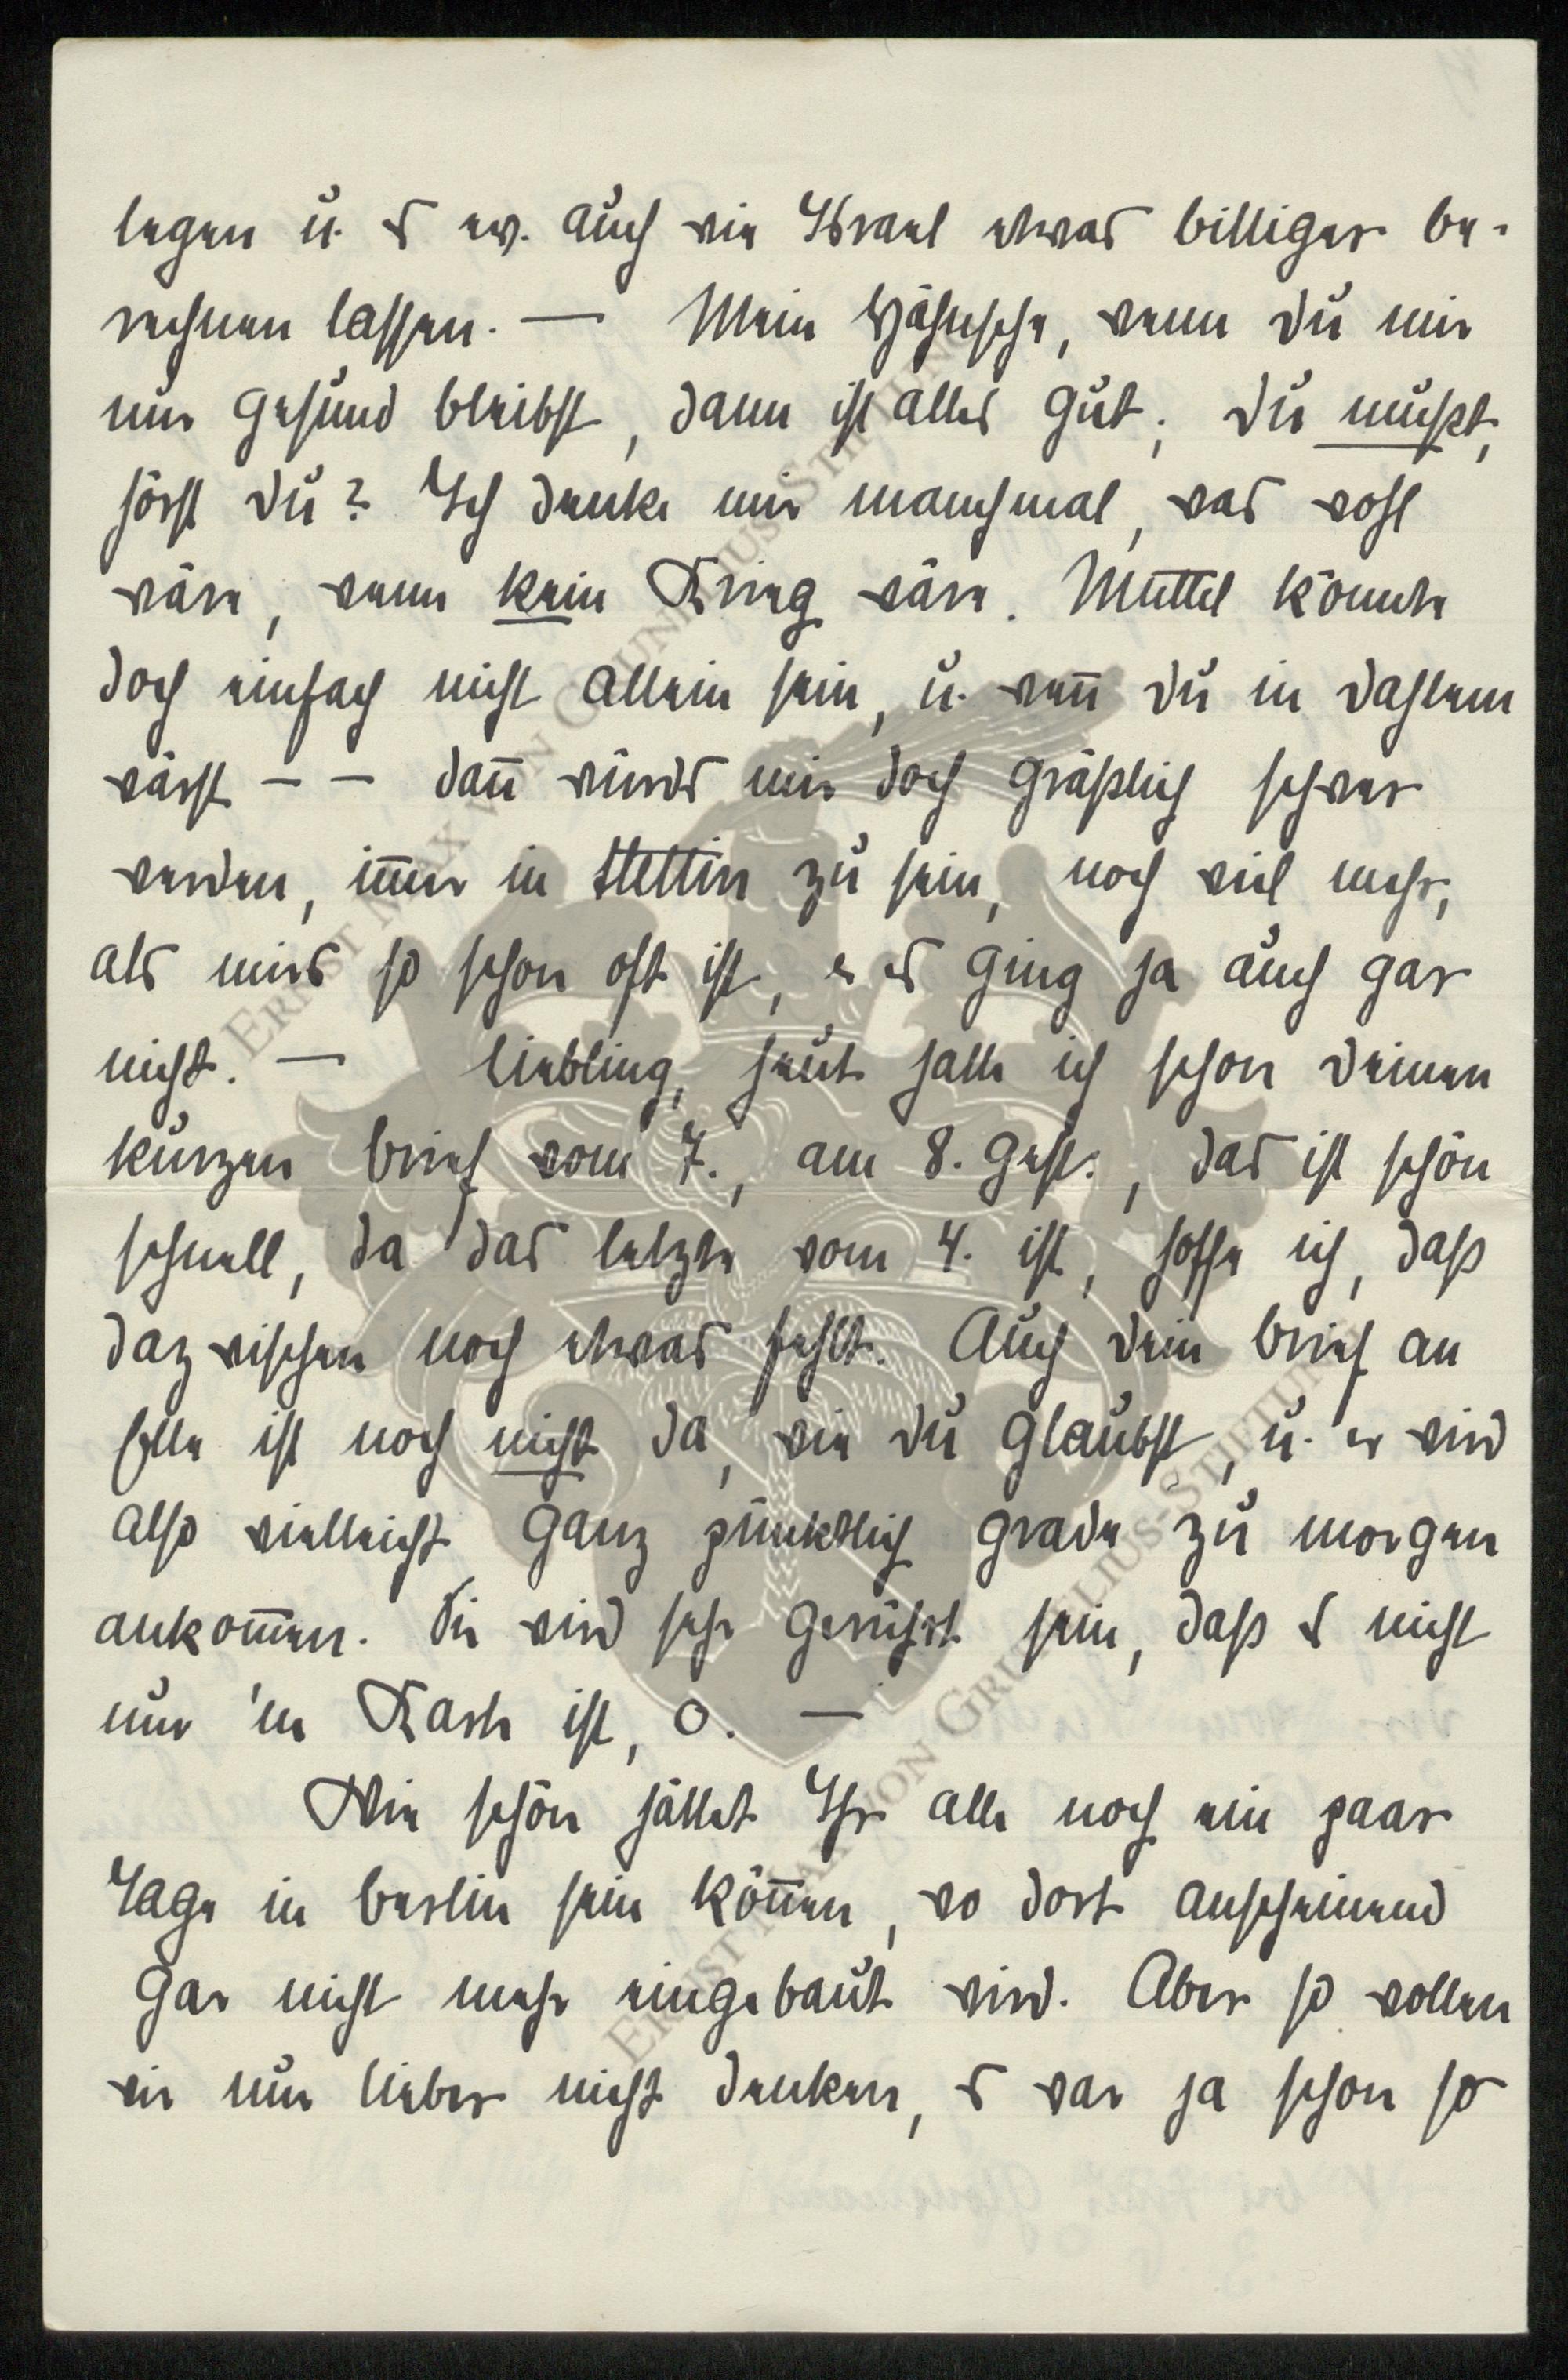 legen u. es ev. auch wie Israel etwas billiger be-
rechnen lassen. — Mein Hähnsche, wenn Du mir
nur gesund bleibst, dann ist alles gut; Du mußt,
hörst Du? Ich denke mir manchmal, was wohl
wäre, wenn kein Krieg wäre. Muttel könnte
doch einfach nicht allein sein, u. weñ Du in Dahlem
wärst – – dañ würds mir doch gräßlich schwer
werden, im̄er in Stettin zu sein, noch viel mehr,
als mirs so schon oft ist, es ging ja auch gar
nicht. — Liebling, heute hatte ich schon Deinen
kurzen Brief vom 7., am 8. gest., das ist schön
schnell, da das letzte vom 4. ist, hoffe ich, daß
dazwischen noch etwas fehlt. Auch Dein Brief an
ist noch nicht da, wie Du glaubst, u. er wird
also vielleicht ganz pünktlich grade zu morgen
ankom̄en. Sie wird sehr gerührt sein, daß es nicht
nur 'ne Karte ist, o. —
Wie schön hättet Ihr alle noch ein paar
Tage in Berlin sein kön̄en, wo dort anscheinend
gar nicht mehr eingebaut wird. Aber so wollen
wir nun lieber nicht denken, es war ja schon so
Ernst Max von Grunelius-Stiftung
Ernst Max von Grunelius-Stiftung